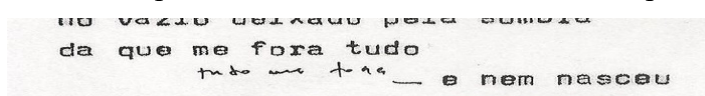 no vazio deixado pela sombra
da que me fora tudo
tudo me fora_ e nem nasceu